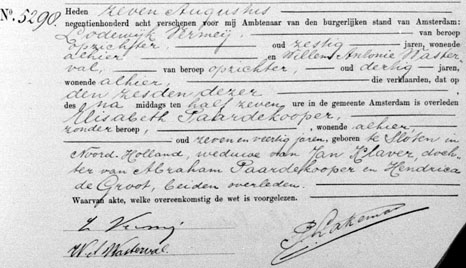 No. 5290. Heden zeven Augustus
negentienhonderd acht verschenen voor mij Ambtenaar van den burgerlijken stand van Amsterdam:
Lodewijk Vermeij, van beroep
opzichter, oud zestig jaren, wonende
alhier en Willem Antonie Waster-
val, van beroep oprichter, oud dertig jaren,
wonende alhier, die verklaarden, dat op
den zesden dezer
des na middags ten half zeven ure in de gemeente Amsterdam is overleden
Elisabeth Paardekooper,
zonder beroep, wonende alhier,
oud zeven en veertig jaren, geboren te Sloten in
Noord-Holland, weduwe van Jan Klaver, doch-
ter van Abraham Paardekooper en Hendrica
de Groot, beiden overleden.
Waarvan akte, welke overeenkomstig de wet is voorgelezen.
W. A. Wasterval